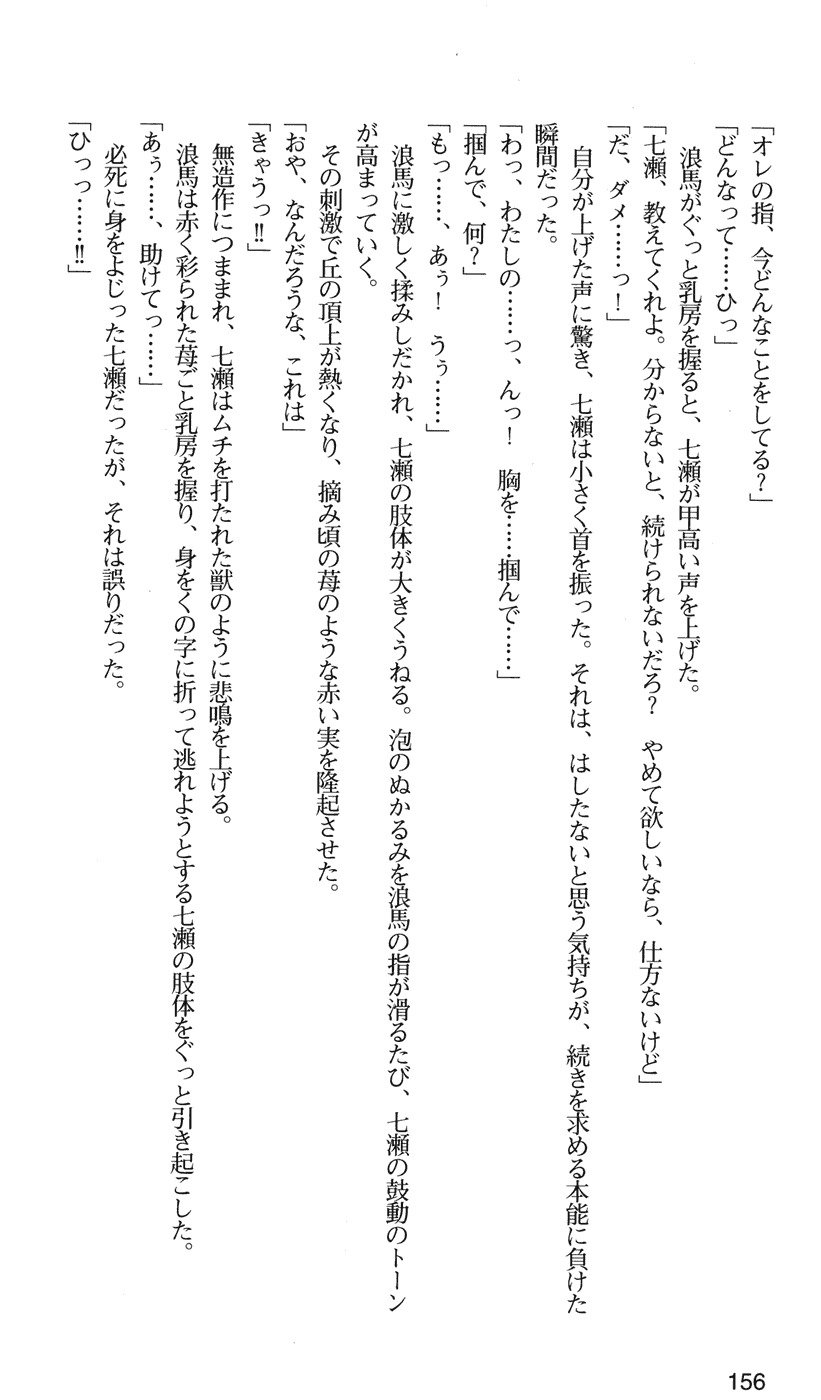 「オレの指、今どんなことをしてる？」
「どんなって……ひっ」
浪馬がぐっと乳房を握ると、七瀬が甲高い声を上げた。
「七瀬、教えてくれよ。分からないと、続けられないだろ？　やめて欲しいなら、仕方ないけど」
「だ、ダメ……っ！」
自分が上げた声に驚き、七瀬は小さく首を振った。それは、はしたないと思う気持ちが、続きを求める本能に負けた
瞬間だった。
「わっ、わたしの……っ、んっ！　胸を……掴んで……」
「掴んで、何？」
「もっ……、あぅ！　うぅ……」
浪馬に激しく揉みしだかれ、七瀬の肢体が大きくうねる。泡のぬかるみを浪馬の指が滑るたび、七瀬の鼓動のトーン
が高まっていく。
その刺激で丘の頂上が熱くなり、摘み頃の苺のような赤い実を隆起させた。
「おや、なんだろうな、これは」
「きゃうっ‼」
無造作につままれ、七瀬はムチを打たれた獣のように悲鳴を上げる。
浪馬は赤く彩られた苺ごと乳房を握り、身をくの字に折って逃れようとする七瀬の肢体をぐっと引き起こした。
「あぅ……、助けてっ……」
必死に身をよじった七瀬だったが、それは誤りだった。
「ひっっ……‼」
156